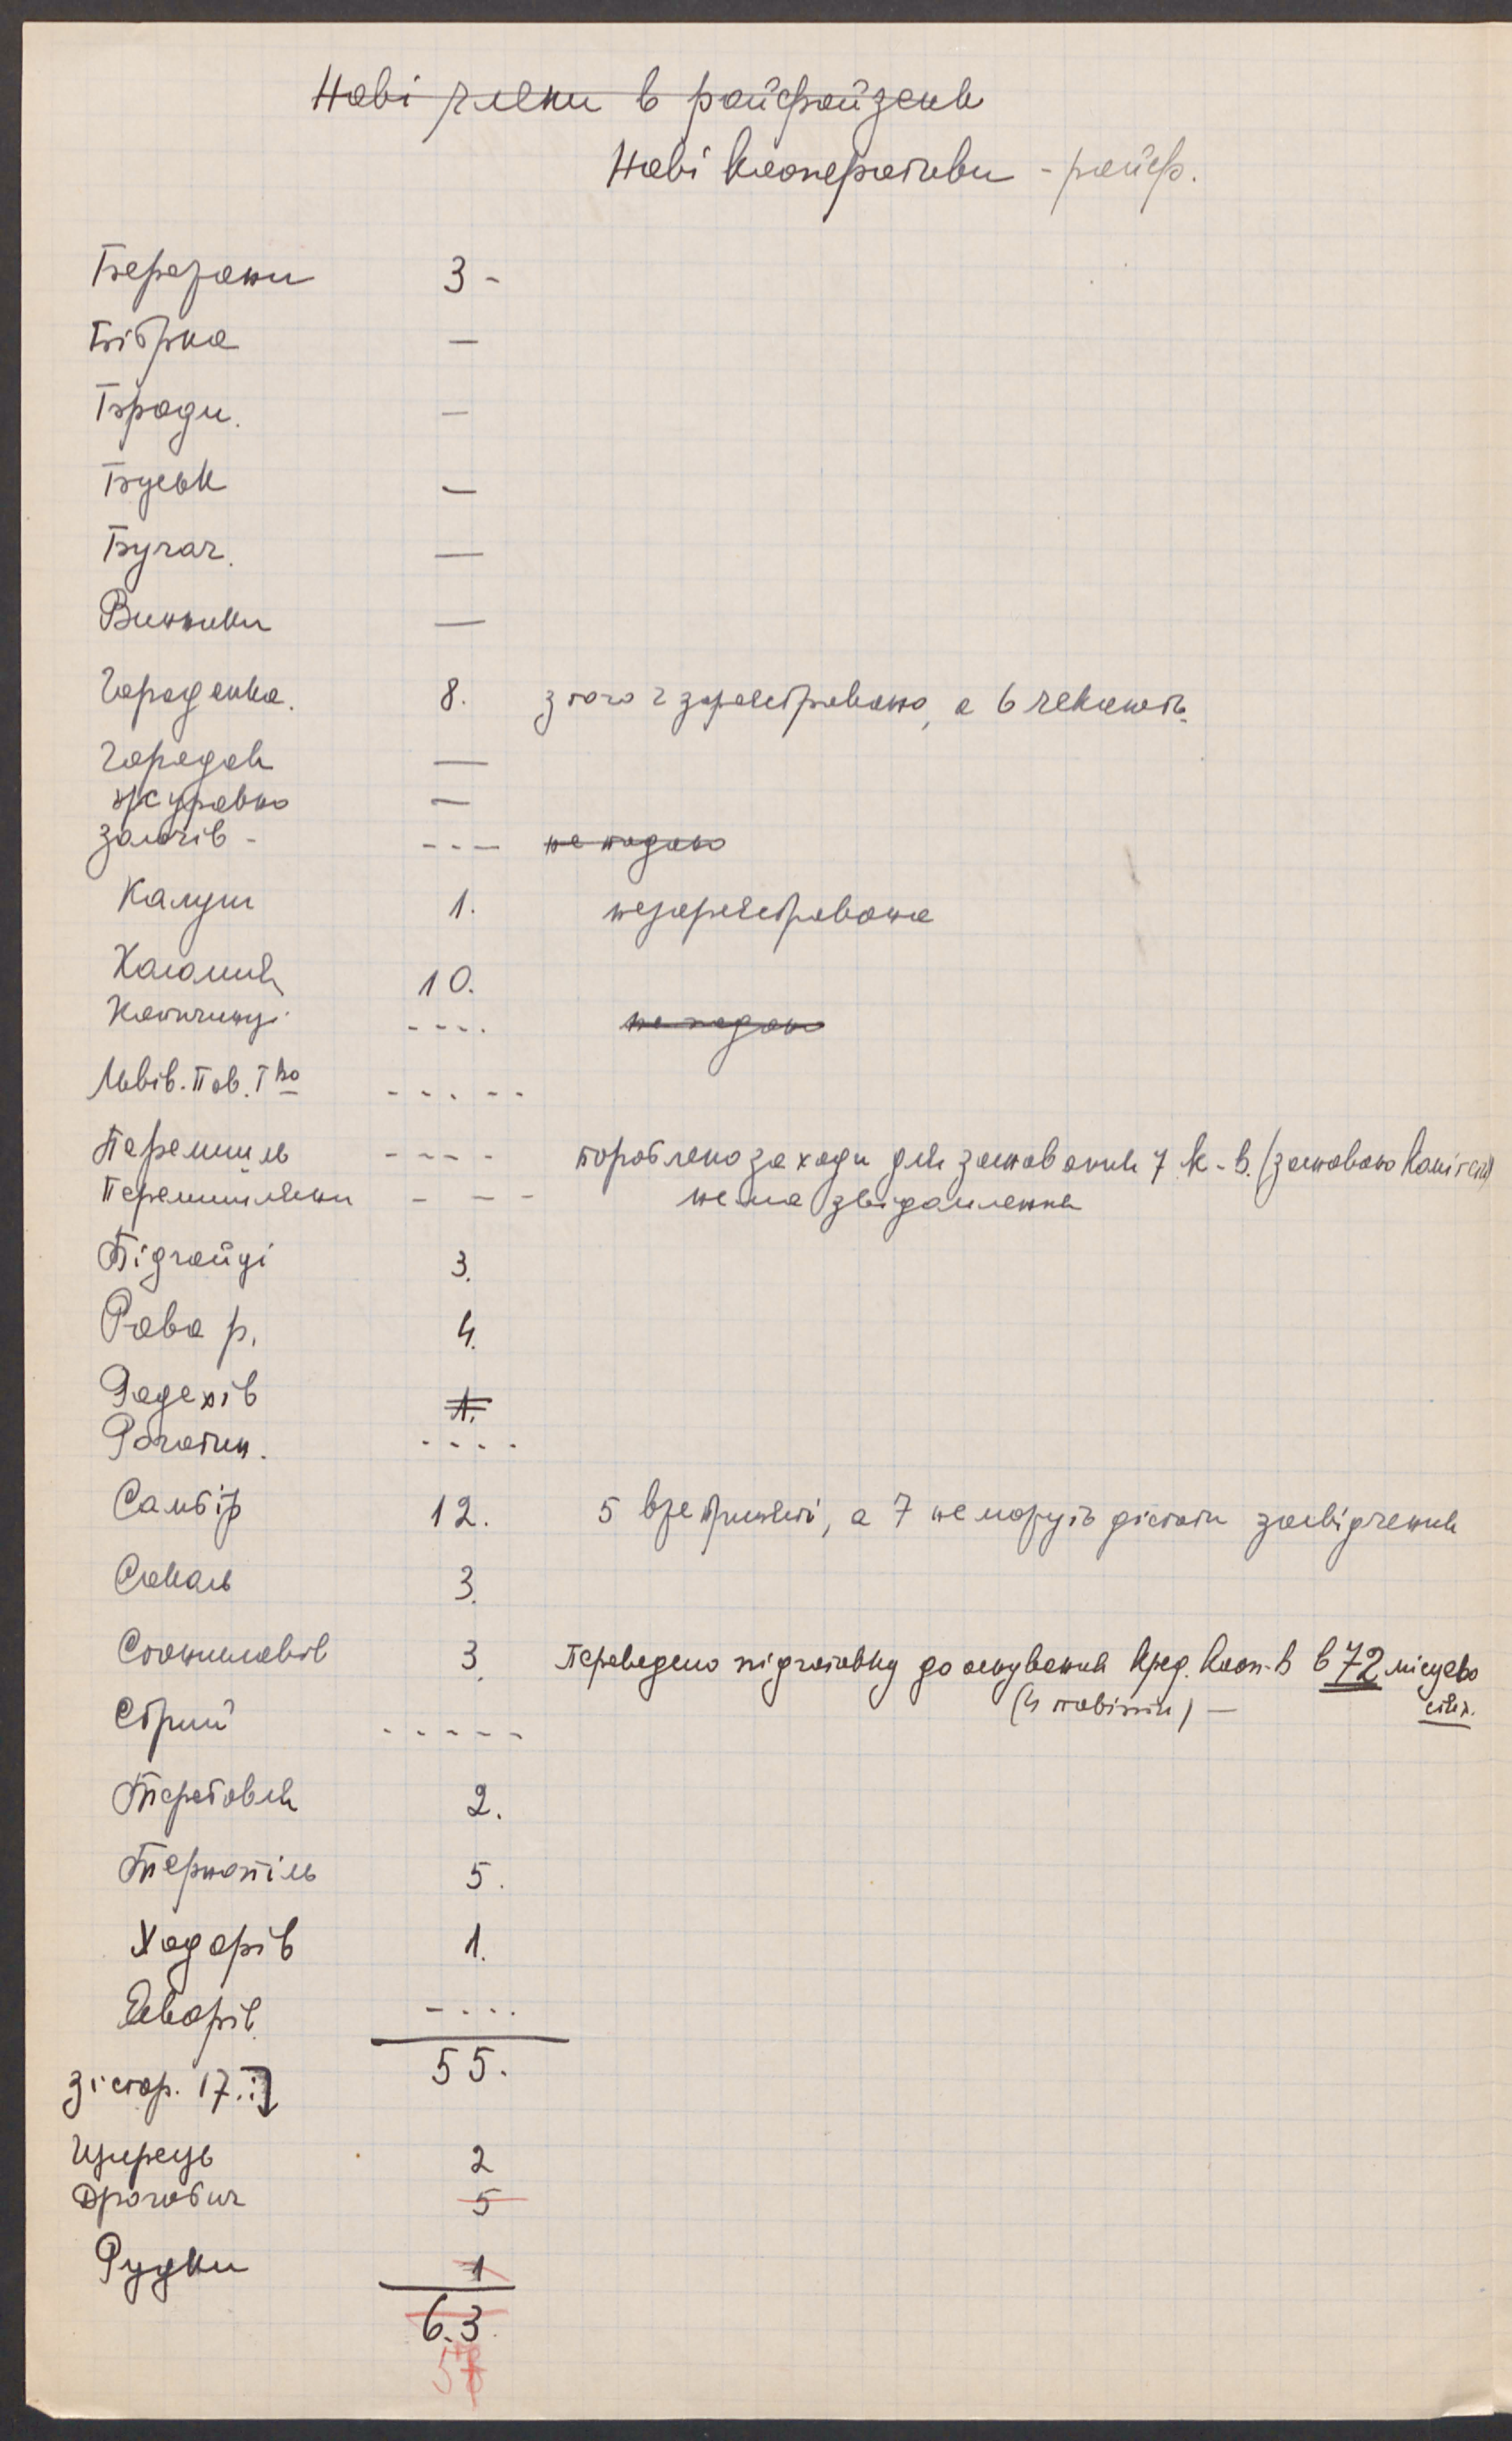 Нові члени в райфайзенк
Нові кооперативи - райф.
Бережани 3 -
Бібрка —
Броди. —
Буськ —
Бучач. —
Винники —
Городенка. 8. з того 2 зареєстровано, а 6 чекають.
Городок —
Журавно —
Золочів - - - — не подано
Калуш 1. незареєстрована
Коломия 10.
Копичинці - - - - не подано
Львів. Пов. Тво - - - - -
Перемишль - - - - пороблено заходи для заснування 7 к-в. (засновано
Перемишляни - - - нема звідомлення
Підгайці 3.
Рава р. 4.
Радехів 1.
Рогатин. - - - -
Самбір 12. 5 вже приняті, а 7 не можуть дістати засвідчення
Сокаль 3.
Станиславів 3. Переведено підготовку до оснування кред. кооп-в в 72 місцево
(4 повіти) — стях.
Стрий - - - - -
Теребовля 2.
Тернопіль 5.
Ходорів 1.
Яворів - - - -
55.
зі стор. 17.:
Щирець 2
Дрогобич 5
Рудки 1
6.3.
58